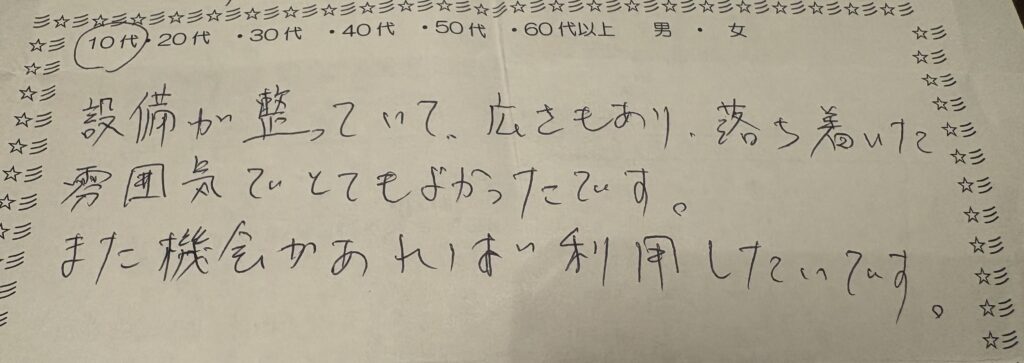 10代・20代 ・30代 ・40代 ・50代 ・60代以上 男 ・ 女
設備が整っていて、広さもあり、落ち着いた
雰囲気でとてもよかったです。
また機会があれば利用したいです。